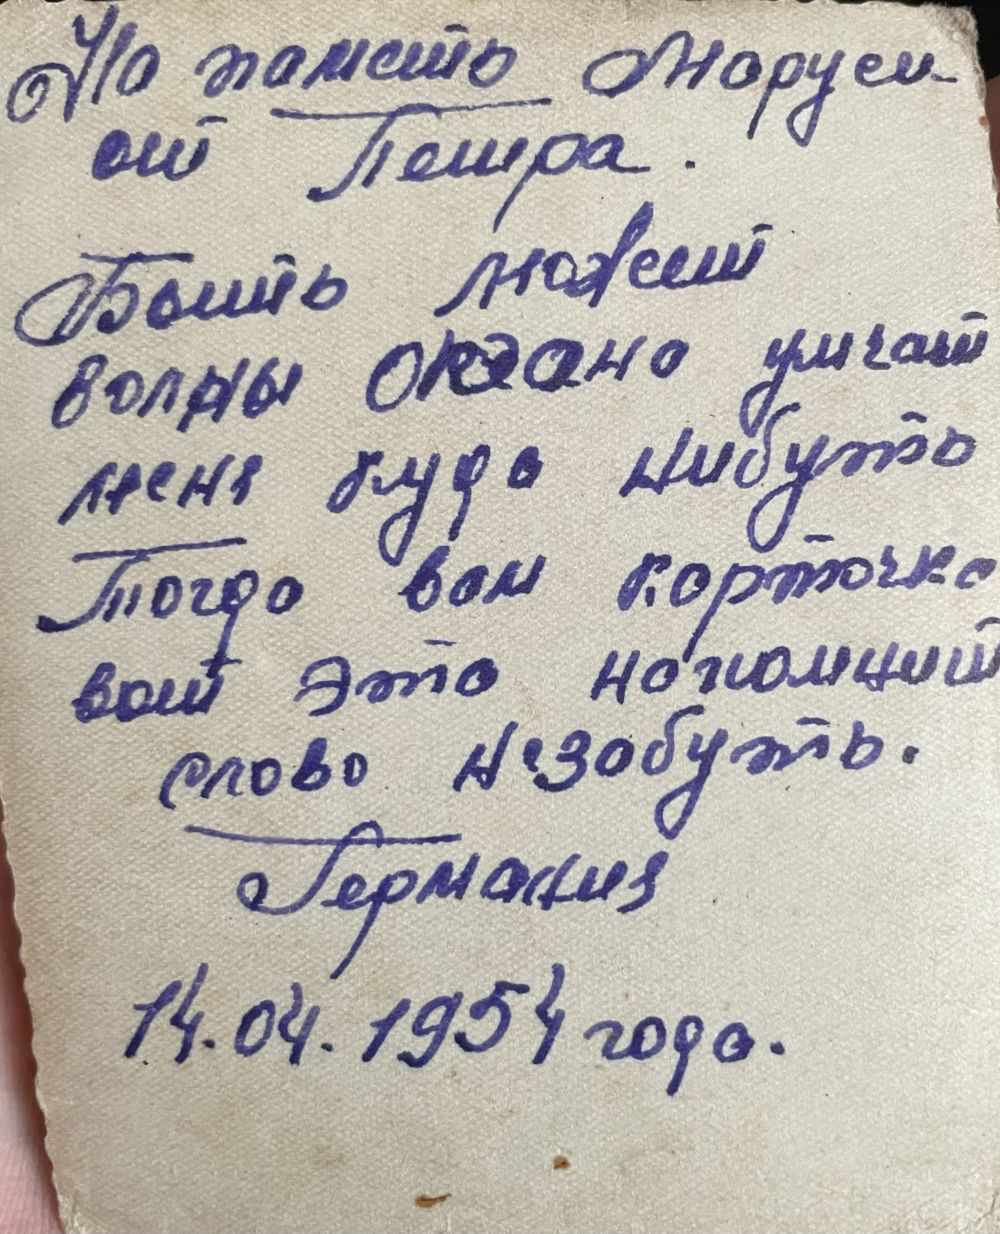 На паметь Маруси
от Петра.
Быть может
волны океана умчат
меня куда нибуть
Тогда вам карточка
вот это напомнит
слово незабуть.
Германия
14.04.1954 года.